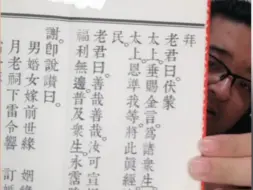 拜
老君曰。伏蒙
太上。垂賜金言。為諸衆生
太上恩準我等。將此真經
民。
老君曰。善哉善哉。汝可宣
福利無邊。普及衆生。永霑
謝。即說讚曰。
男婚女嫁前世緣 姻緣
月老祠下雷令響 訂婚